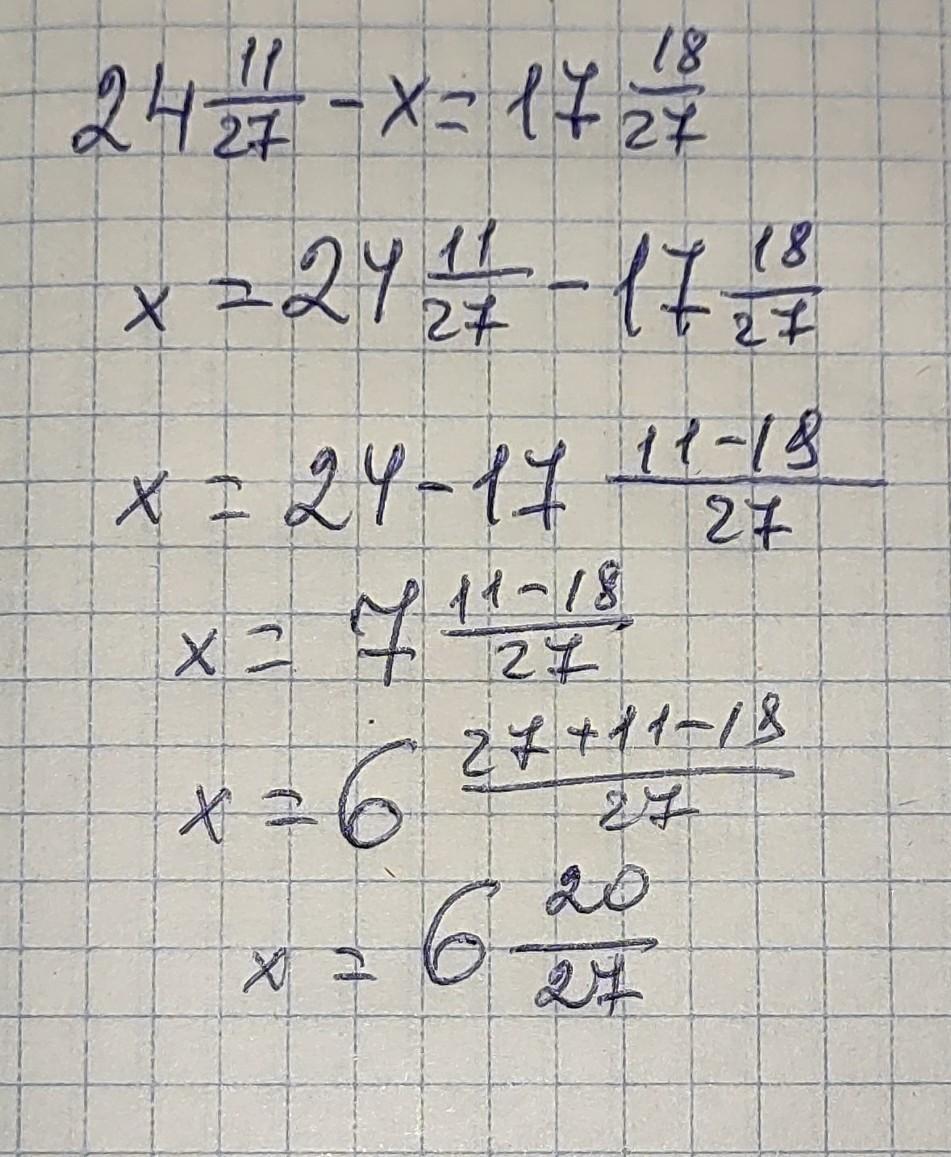 24 11/27 - x = 17 18/27
x = 24 11/27 - 17 18/27
x = 24 - 17 11-18/27
x = 7 11-18/27
x = 6 27+11-18/27
x = 6 20/27